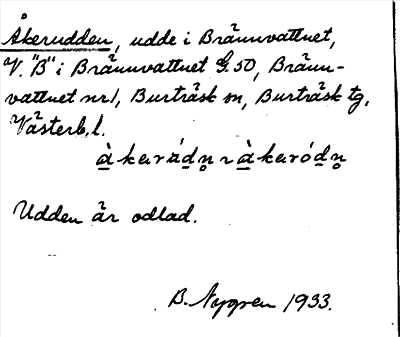 Åkerudden, udde i Brännvattnet,
V. "B" i Brännvattnet G. 50, Bränn-
vattnet nr 1, Burträsk sn, Burträsk tg,
Västerb. l.
Udden är odlad.
B. Nygren 1933.